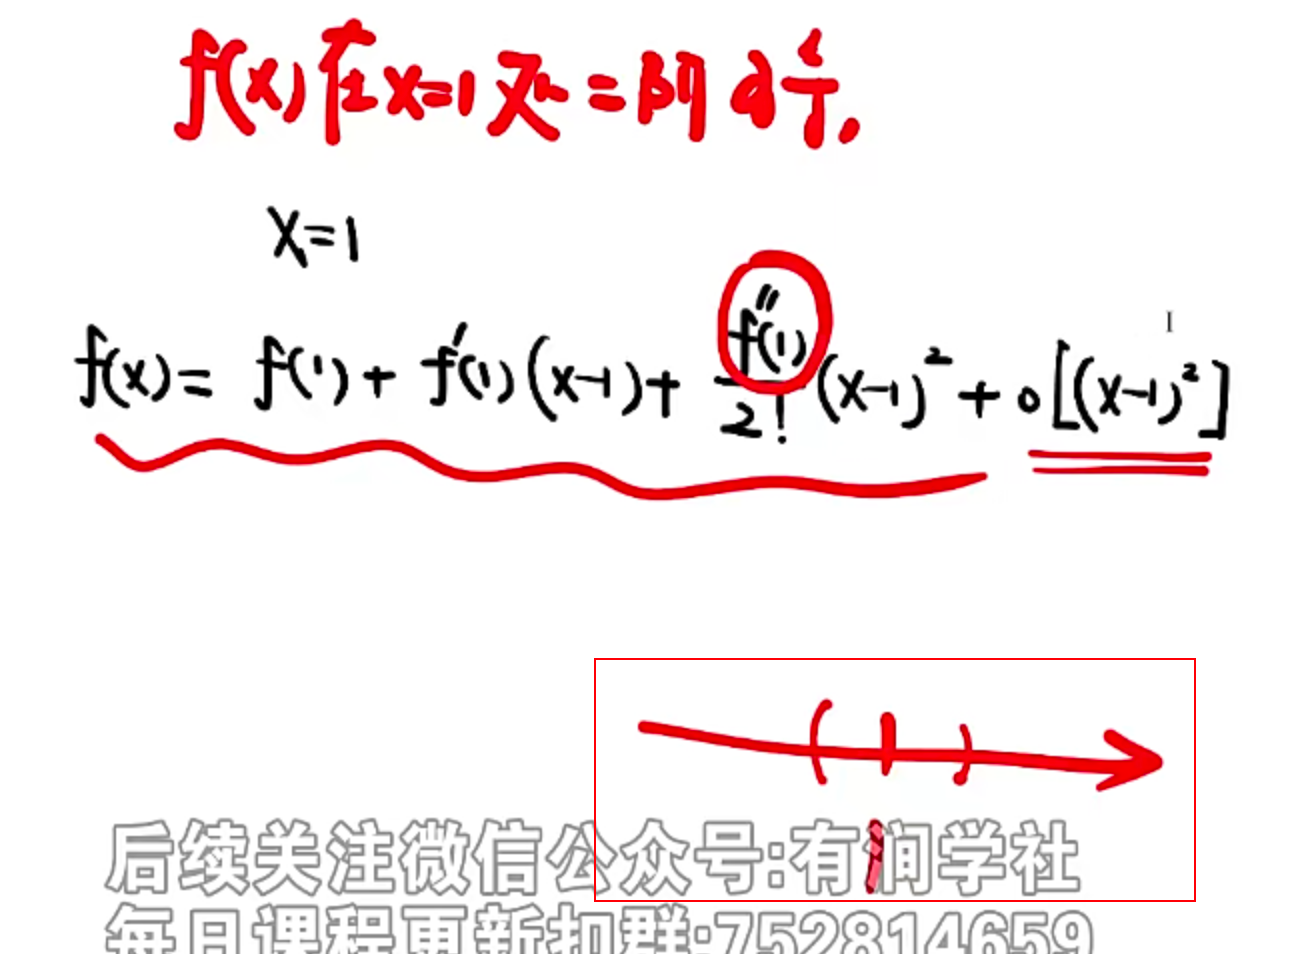 f(x)在x=1处=阶可导.
x=1
f(x)= f(1)+ f'(1)(x-1)+ f''(1)/2! (x-1)²+o[(x-1)²]
1
后续关注微信公众号:有间学社
每日课程更新扣群:752814659